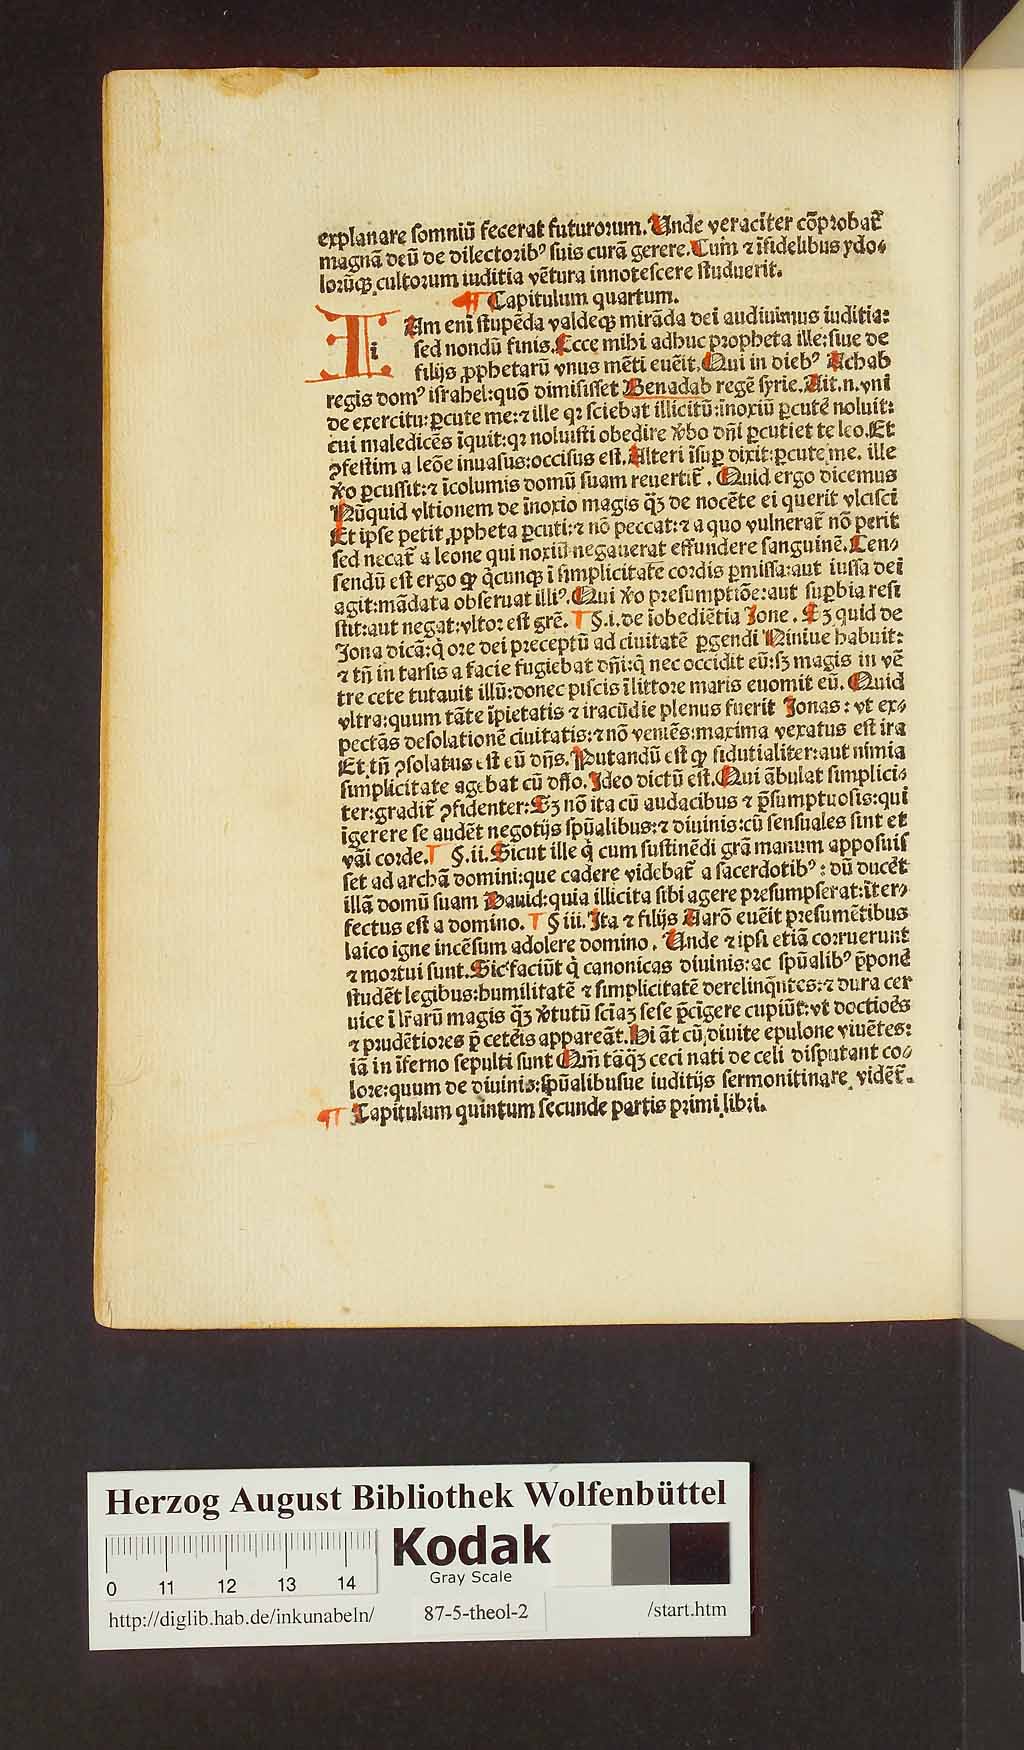 explanare somniū fecerat futurorum. Unde veraciter cōprobat᷑
magnā deū de dilectoribꝰ suis curā gerere. Cum ⁊ īfidelibus ydo⸗
lorūqꝫ cultorum iuditia vētura innotescere studuerit.
¶ Capitulum quartum.
Iam eni stupēda valdeqꝫ mirāda dei audiuimus iuditia:
sed nondū finis. Ecce mihi adhuc propheta ille: siue de
filijs ꝓphetarū vnus mēti euēit. Qui in diebꝰ Achab
regis domꝰ israhel: quō dimisisset Benadab regē syrie. Ait .n. vni
de exercitu: ꝑcute me: ⁊ ille qꝛ sciebat illicitū: inoxiū ꝑcutē noluit:
cui maledicēs īquit: qꝛ noluisti obedire v̾bo dn̄i ꝑcutiet te leo. Et
ꝯfestim a leōe inuasus: occisus est. Alteri īsuꝑ dixit: ꝑcute me. ille
v̾o ꝑcussit: ⁊ īcolumis domū suam reuertit᷑. Quid ergo dicemus
Nūquid vltionem de inoxio magis qꝫ̄ de nocēte ei querit vlcisci
Et ipse petit ꝓpheta ꝑcuti: ⁊ nō peccat: ⁊ a quo vulnerat᷑ nō perit
sed necat᷑ a leone qui noxiū negauerat effundere sanguinē. Cen⸗
sendū est ergo ꝙ q̇cunqꝫ ī simplicitate cordis ꝑmissa: aut iussa dei
agit: mādata obseruat illiꝰ. Qui v̾o presumptiōe: aut suꝑbia resi
stit: aut negat: vltor est grē. ¶ §.i. de īobediētia Ione. Sꝫ quid de
Iona dicā: q̇ ore dei preceptū ad ciuitatē ꝑgendi Niniue habuit:
⁊ tn̄ in tarsis a facie fugiebat dn̄i: q̇ nec occidit eū: sꝫ magis in vē
tre cete tutauit illū: donec piscis ī littore maris euomit eū. Quid
vltra: quum tāte īpietatis ⁊ iracūdie plenus fuerit Jonas: vt ex⸗
pectās desolationē ciuitatis: ⁊ nō veniēs: maxima vexatus est ira
Et tn̄ ꝯsolatus est eū dn̄s. Putandū est ꝙ fidutialiter: aut nimia
simplicitate agebat cū dn̄o. Ideo dictū est. Qui ābulat simplici⸗
ter: gradit᷑ ꝯfidenter: Sꝫ nō ita cū audacibus ⁊ p̄sumptuosis: qui
īgerere se audēt negotijs spūalibus: ⁊ diuinis: cū sensuales sint et
vāi corde. ¶ §.ii. Sicut ille q̇ cum sustinēdi grā manum apposuis
set ad archā domini: que cadere videbat᷑ a sacerdotibꝰ: dū ducēt
illā domū suam Dauid: quia illicita sibi agere presumpserat: īter⸗
fectus est a domino. ¶ §iii. Ita ⁊ filijs Aarō euēit presumētibus
laico igne incēsum adolere domino. Unde ⁊ ipsi etiā corruerunt
⁊ mortui sunt. Sic faciūt q̇ canonicas diuinis: ac spūalibꝰ p̄ponē
studēt legibus: humilitatē ⁊ simplicitatē derelinq̄ntes: ⁊ dura cer
uice ī lr̄arū magis qꝫ̄ v̾tutū sciaꝫ sese p̄cīgere cupiūt: vt doctioēs
⁊ prudētiores p̄ ceteīs appareāt. Hi āt cū diuite epulone viuētes:
iā in īferno sepulti sunt Qm̄ tāqꝫ̄ ceci nati de celi disputant co⸗
lore: quum de diuinis: spūalibusue iuditijs sermonitinare vidēt᷑.
¶ Capitulum quintum secunde partis primi libri.
Herzog August Bibliothek Wolfenbüttel
Kodak
Gray Scale
0 11 12 13 14
http://diglib.hab.de/inkunabeln/ 87-5-theol-2 /start.htm